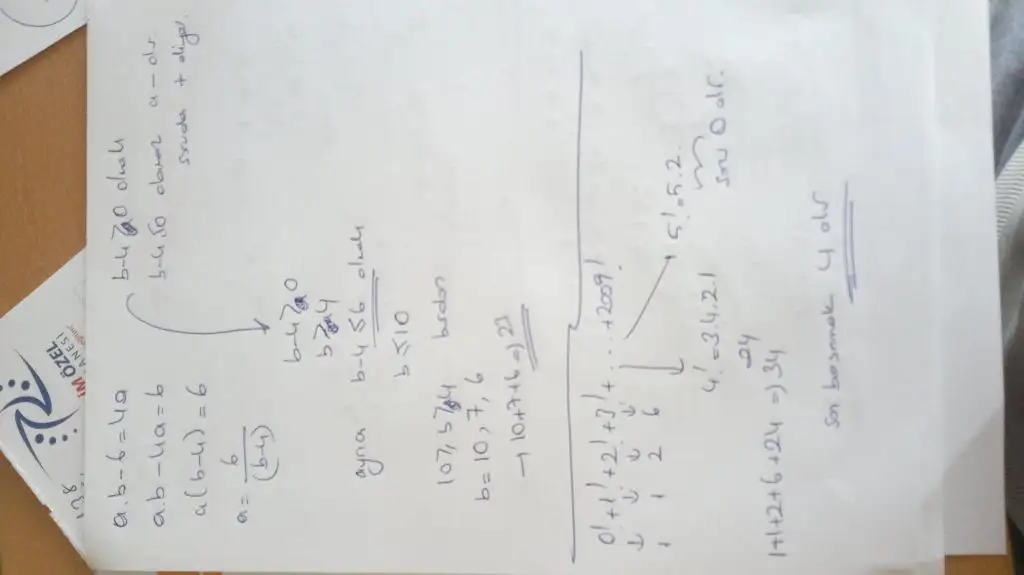 a.b-6=4a
a.b-4a=6
a(b-4)=6
a=6/(b-4)
b-4>0 olmalı
b-4≤0 olamaz a - olur
soruda + diyor.
b-4>0
b>4
ayrıca b-4≤6 olmalı
b≤10
10≥b>4 burdan
b=10,7,6
→10+7+6=>23
0!+1!+2!+3!+...+2009!
↓ ↓ ↓ ↓
1 1 2 6
4!=3.4.2.1
24
5!=5.2.
sonu 0 olr.
1+1+2+6+24=>34
Son basamak 4 olr
İM ÖZEL